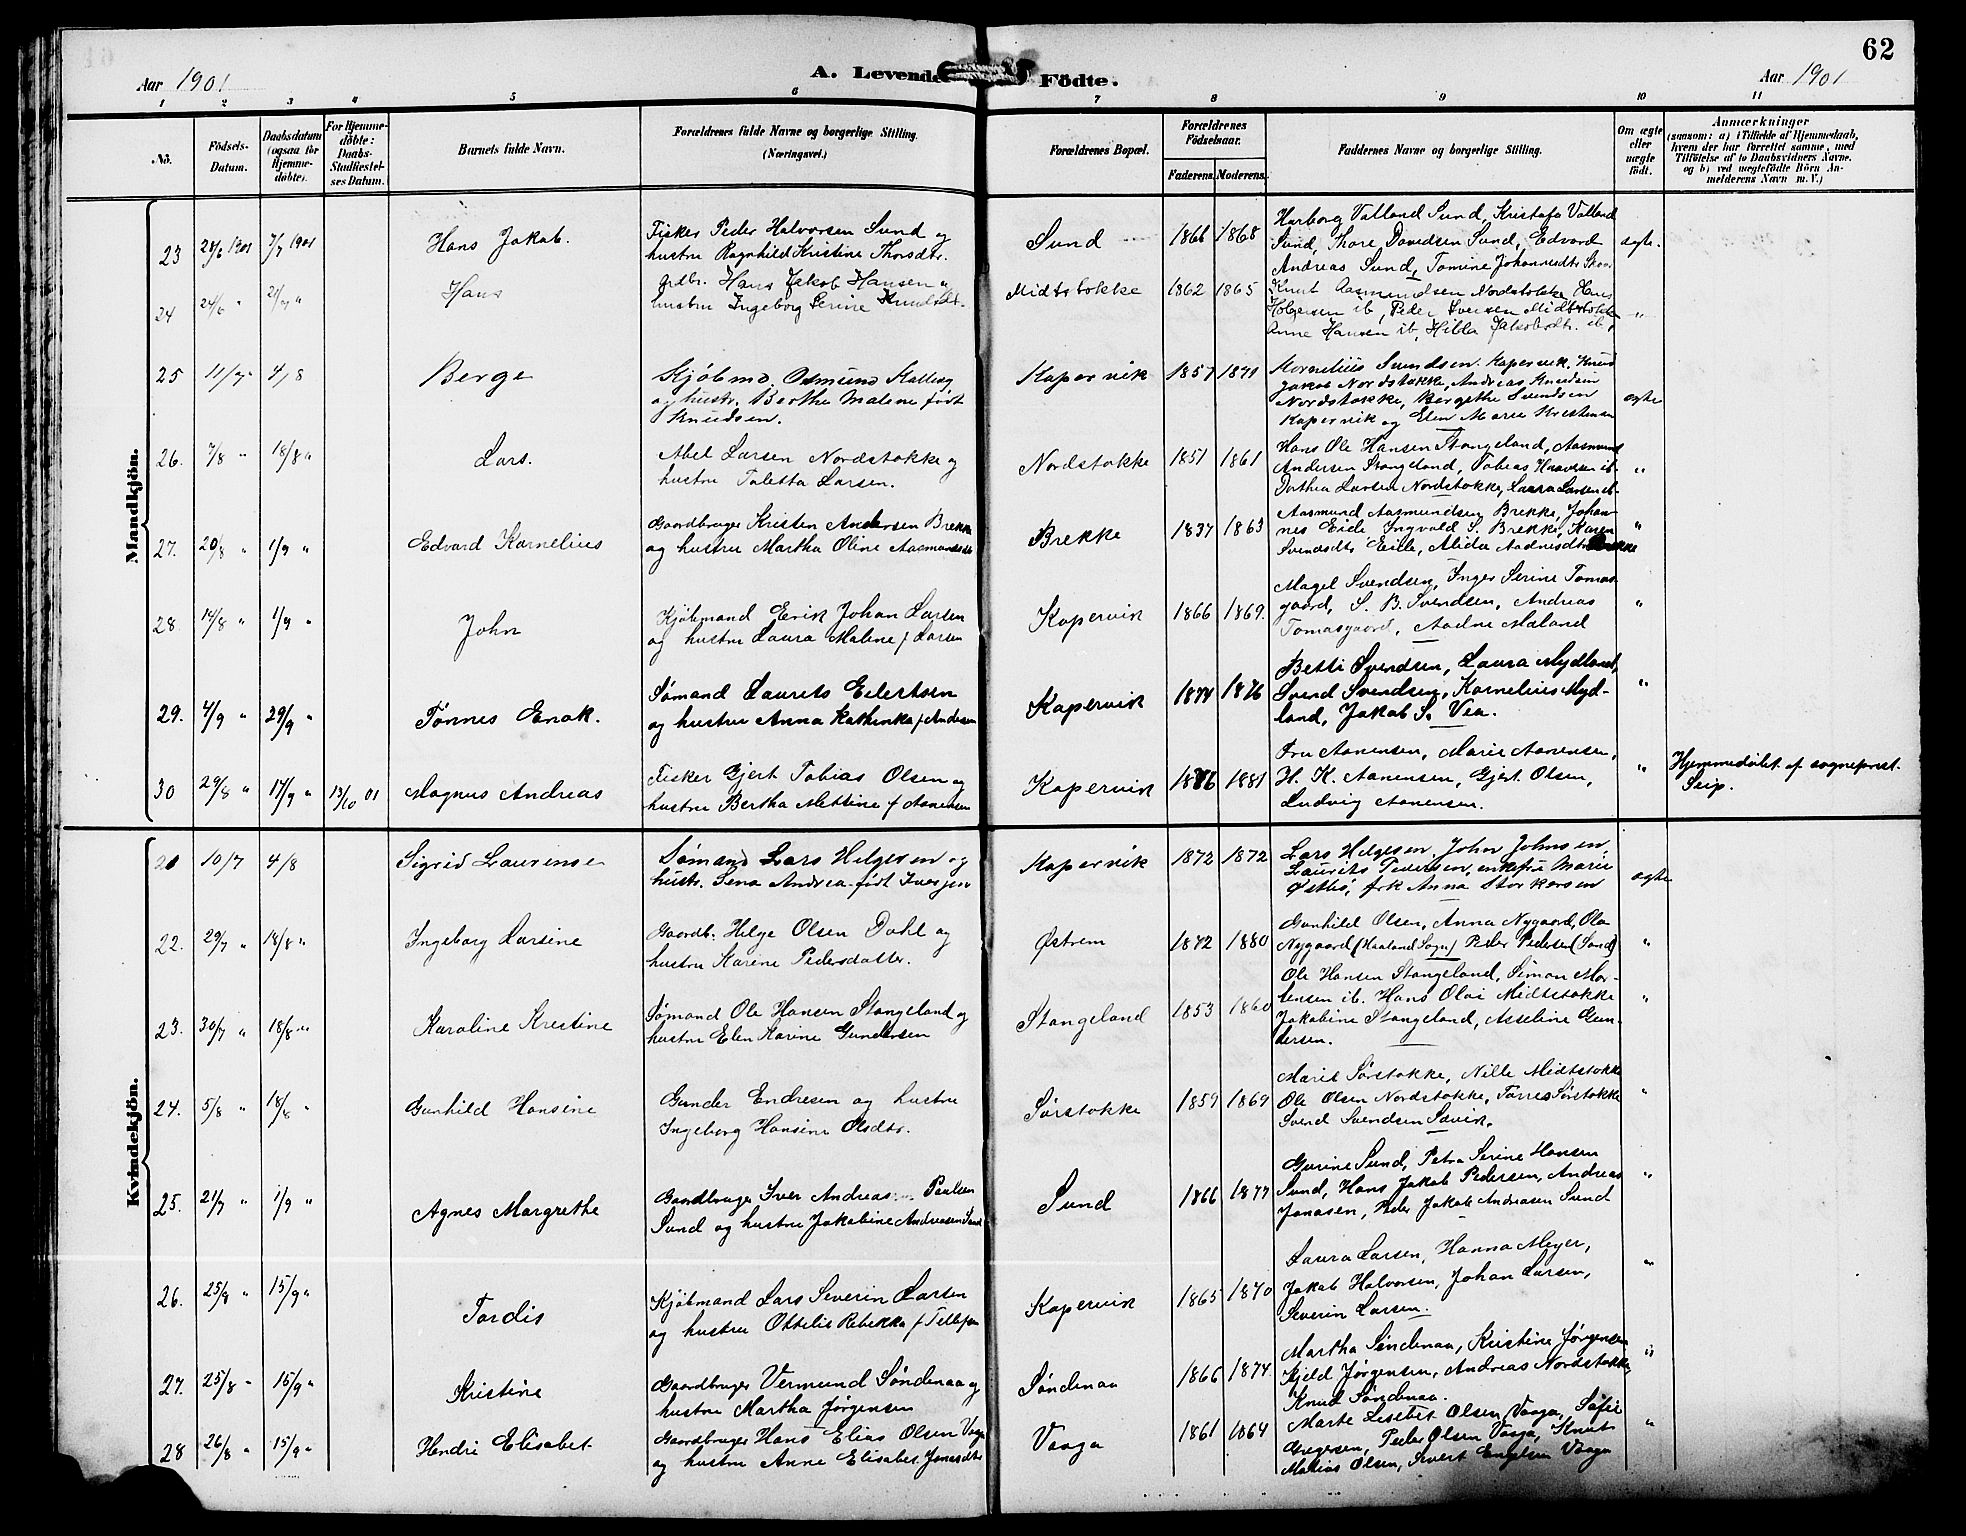 62
Aar 1901 A. Levende Födte. Aar 1901
1 2 3 4 5 6 7 8 9 10 11
No. Födsels-Datum. Daabsdatum (ogsaa for Hjemme-døbte). For Hjemme-døbte: Daabs-Stadfæstel-ses Datum. Barnets fulde Navn. Forældrenes fulde Navne og borgerlige Stilling. (Næringsvei.) Forældrenes Bopæl. Forældrenes Födselsaar. Faderens. Moderens. Faddernes Navne og borgerlige Stilling. Om ægte eller uægte födt. Anmærkninger
(saasom: a) i Tilfælde af Hjemmedaab,
hvem der har forrettet samme, med
Tilföielse af to Daabsvidners Navne.
og b) ved uægtefödte Börn An-
melderens Navn m. V.)
Mandkjön.
23 24/6 1901 7/7 1901 Hans Jakob. Fisker Peder Halvorsen Sund og
hustru Ragnhild Kristine Thorsdtr. Sund 1866 1868 Harborg Valland Sund, Kristofa Valland
Sund, Thore Davidsen Sund, Edvard
Andreas Sund, Tomine Johannesdtr Skaar ægte.
24 24/6 " 21/7 " Hans Grdbr. Hans Jakob Hansen &
hustru Ingeborg Serine Knudsdt. Midtstokke 1862 1865 Knut Aasmundsen Nordstokke, Hans
Holgersen ib, Peder Iversen Midtstokke
Anne Hansen ib, Hilda Jakobsdtr. ib, "
25 11/7 " 4/8 Berge Kjøbmd. Osmund Kalleg
og hustr. Berthe Malene født
Knudsen. Kapervik 1857 1871 Kornelius Sundsen. Kapervik, Knud
Jakob Nordstokke, Andreas Knudsen
Nordstokke, Bergethe Svendsen
Kapervik og Elen Marie Kristensen ægte
26. 7/8 " 18/8 " Lars. Abel Larsen Nordstokke og
hustru Taletta Larsen. Nordstokke 1851 1861 Hans Ole Hansen Stangeland, Aasmund
Andersen Stangeland, Tobias Haaversen ib.
Dorthea Larsen Nordstokke, Laura Larsen ib. "
27. 20/8 " 1/9 " Edvard Kornelius Gaardbruger Kristen Andersen Brekke
og hustru Martha Oline Aasmundsdtr Brekke 1837 1863 Aasmund Aasmundsen Brekke, Johan-
nes Eide, Ingvald S. Brekke, Karen
Svendsdtr Eide, Alida Aadnesdtr Brekke "
28. 14/8 " 1/9 " John Kjøbmand Erik Johan Larsen
og hustru Laura Malene f. Larsen Kapervik 1866 1869. Magel Svendsen, Inger Serine Tomas-
gaard, S. B. Svendsen, Andreas
Tomasgaard, Aadne Maland "
29. 4/9 " 29/9 " Tønnes Enok. Sømand Laurits Eilertsen
og hustru Anna Kathinka f. Andersen Kapervik 1874 1876 Betti Svendsen, Laura Mydland,
Svend Svendsen, Kornelius Myd-
land, Jakob S. Vea. "
30 29/8 " 17/9 " 13/10 01 Magnus Andreas Fisker Gjert Tobias Olsen og
hustru Bertha Mettine f Aanensen Kapervik 1876 1881 Fru Aanensen, Marie Aanensen,
H. K. Aanensen, Gjert Olsen,
Ludvig Aanensen. " Hjemmedøbt af sogneprest
Seip.
Kvindekjön.
21 10/7 4/8 Sigrid Laurense Sømand Lars Helgesen og
hustr. Sena Andrea født Iversen Kapervik 1872 1872 Lars Helgesen, John Johnsen,
Laurits Pedersen, enkefru Marie
Østbø, frk Anna Storkersen ægte
22. 29/7 " 18/8 " Ingeborg Larsine Gaardb. Helge Olsen Dahl og
hustru Karine Pedersdatter. Østrem 1872 1880 Gunhild Olsen, Anna Nygaard, Ola
Nygaard (Haaland Sogn) Peder Pedersen (Sand) "
23. 30/7 " 18/8 " Karoline Kristine Sømand Ole Hansen Stangeland og
hustru Elen Karine Gundersen Stangeland 1853 1860 Ole Hansen Stangeland, Simon Mor-
tensen ib. Hans Olai Midtstokke
Jakobine Stangeland, Asseline Gun-
dersen. "
24. 5/8 " 18/8 " Gunhild Hansine Gunder Endresen og hustru
Ingeborg Hansine Olsdtr. Sørstokke 1859 1869 Marie Sørstokke, Nille Midtstokke
Ole Olsen Nordstokke, Tørres Sørstokke
Svend Svendsen Sævik. "
25. 21/7 " 1/9 " Agnes Margrethe Gaardbruger Iver Andreas Paulsen
Sund og hustru Jakobine Andreasen Sund Sund 1866 1877 Gurine Sund, Petra Serine Hansen
Sund, Hans Jakob Pedersen, Andreas
Jonasen, Peder Jakob Andreasen Sund "
26. 25/8 " 15/9 " Tordis Kjøbmand Lars Severin Larsen
og hustru Ottelie Rebekka f Tellefsen Kapervik 1865 1870 Laura Larsen, Hanna Meyer,
Jakob Halvorsen, Johan Larsen,
Severin Larsen. "
27. 25/8 " 15/9 " Kristine Gaardbruger Vermund Søndenaa og
hustru Martha Jørgensen Søndenaa 1866 1874 Martha Søndenaa, Kristine Jørgensen
Kjeld Jørgensen, Andreas Nordstokke,
Knud Søndenaa. "
28 26/8 " 15/9 " Hendri Elisabet Gaardbruger Hans Elias Olsen Vaaga
og hustru Anne Elisabet Jonasdtr Vaaga 1861 1864 Marte Lisebet Olsen Vaaga, Sofie
Gregersen, Peder Olsen Vaaga, Knut
Matias Olsen, Sivert Engelsen Vaaga "